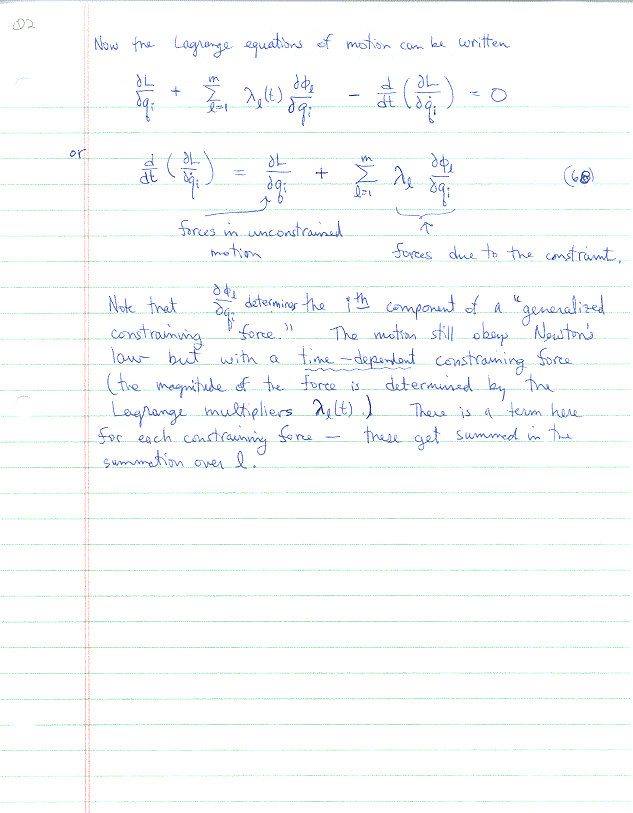 D2
Now the Lagrange equations of motion can be written
∂L/∂qᵢ + Σ_{l=1}^{m} λ_l(t) ∂ϕ_l/∂qᵢ − d/dt (∂L/∂q̇ᵢ) = 0
or
d/dt (∂L/∂q̇ᵢ) = ∂L/∂qᵢ + Σ_{l=1}^{m} λ_l ∂ϕ_l/∂qᵢ (68)
forces in unconstrained
motion
forces due to the constraint.
Note that ∂ϕ_l/∂qᵢ determines the ith component of a "generalized
constraining force." The motion still obeys Newton's
law but with a time-dependent constraining force
(the magnitude of the force is determined by the
Lagrange multipliers λ_l(t).) There is a term here
for each constraining force — these get summed in the
summation over l.